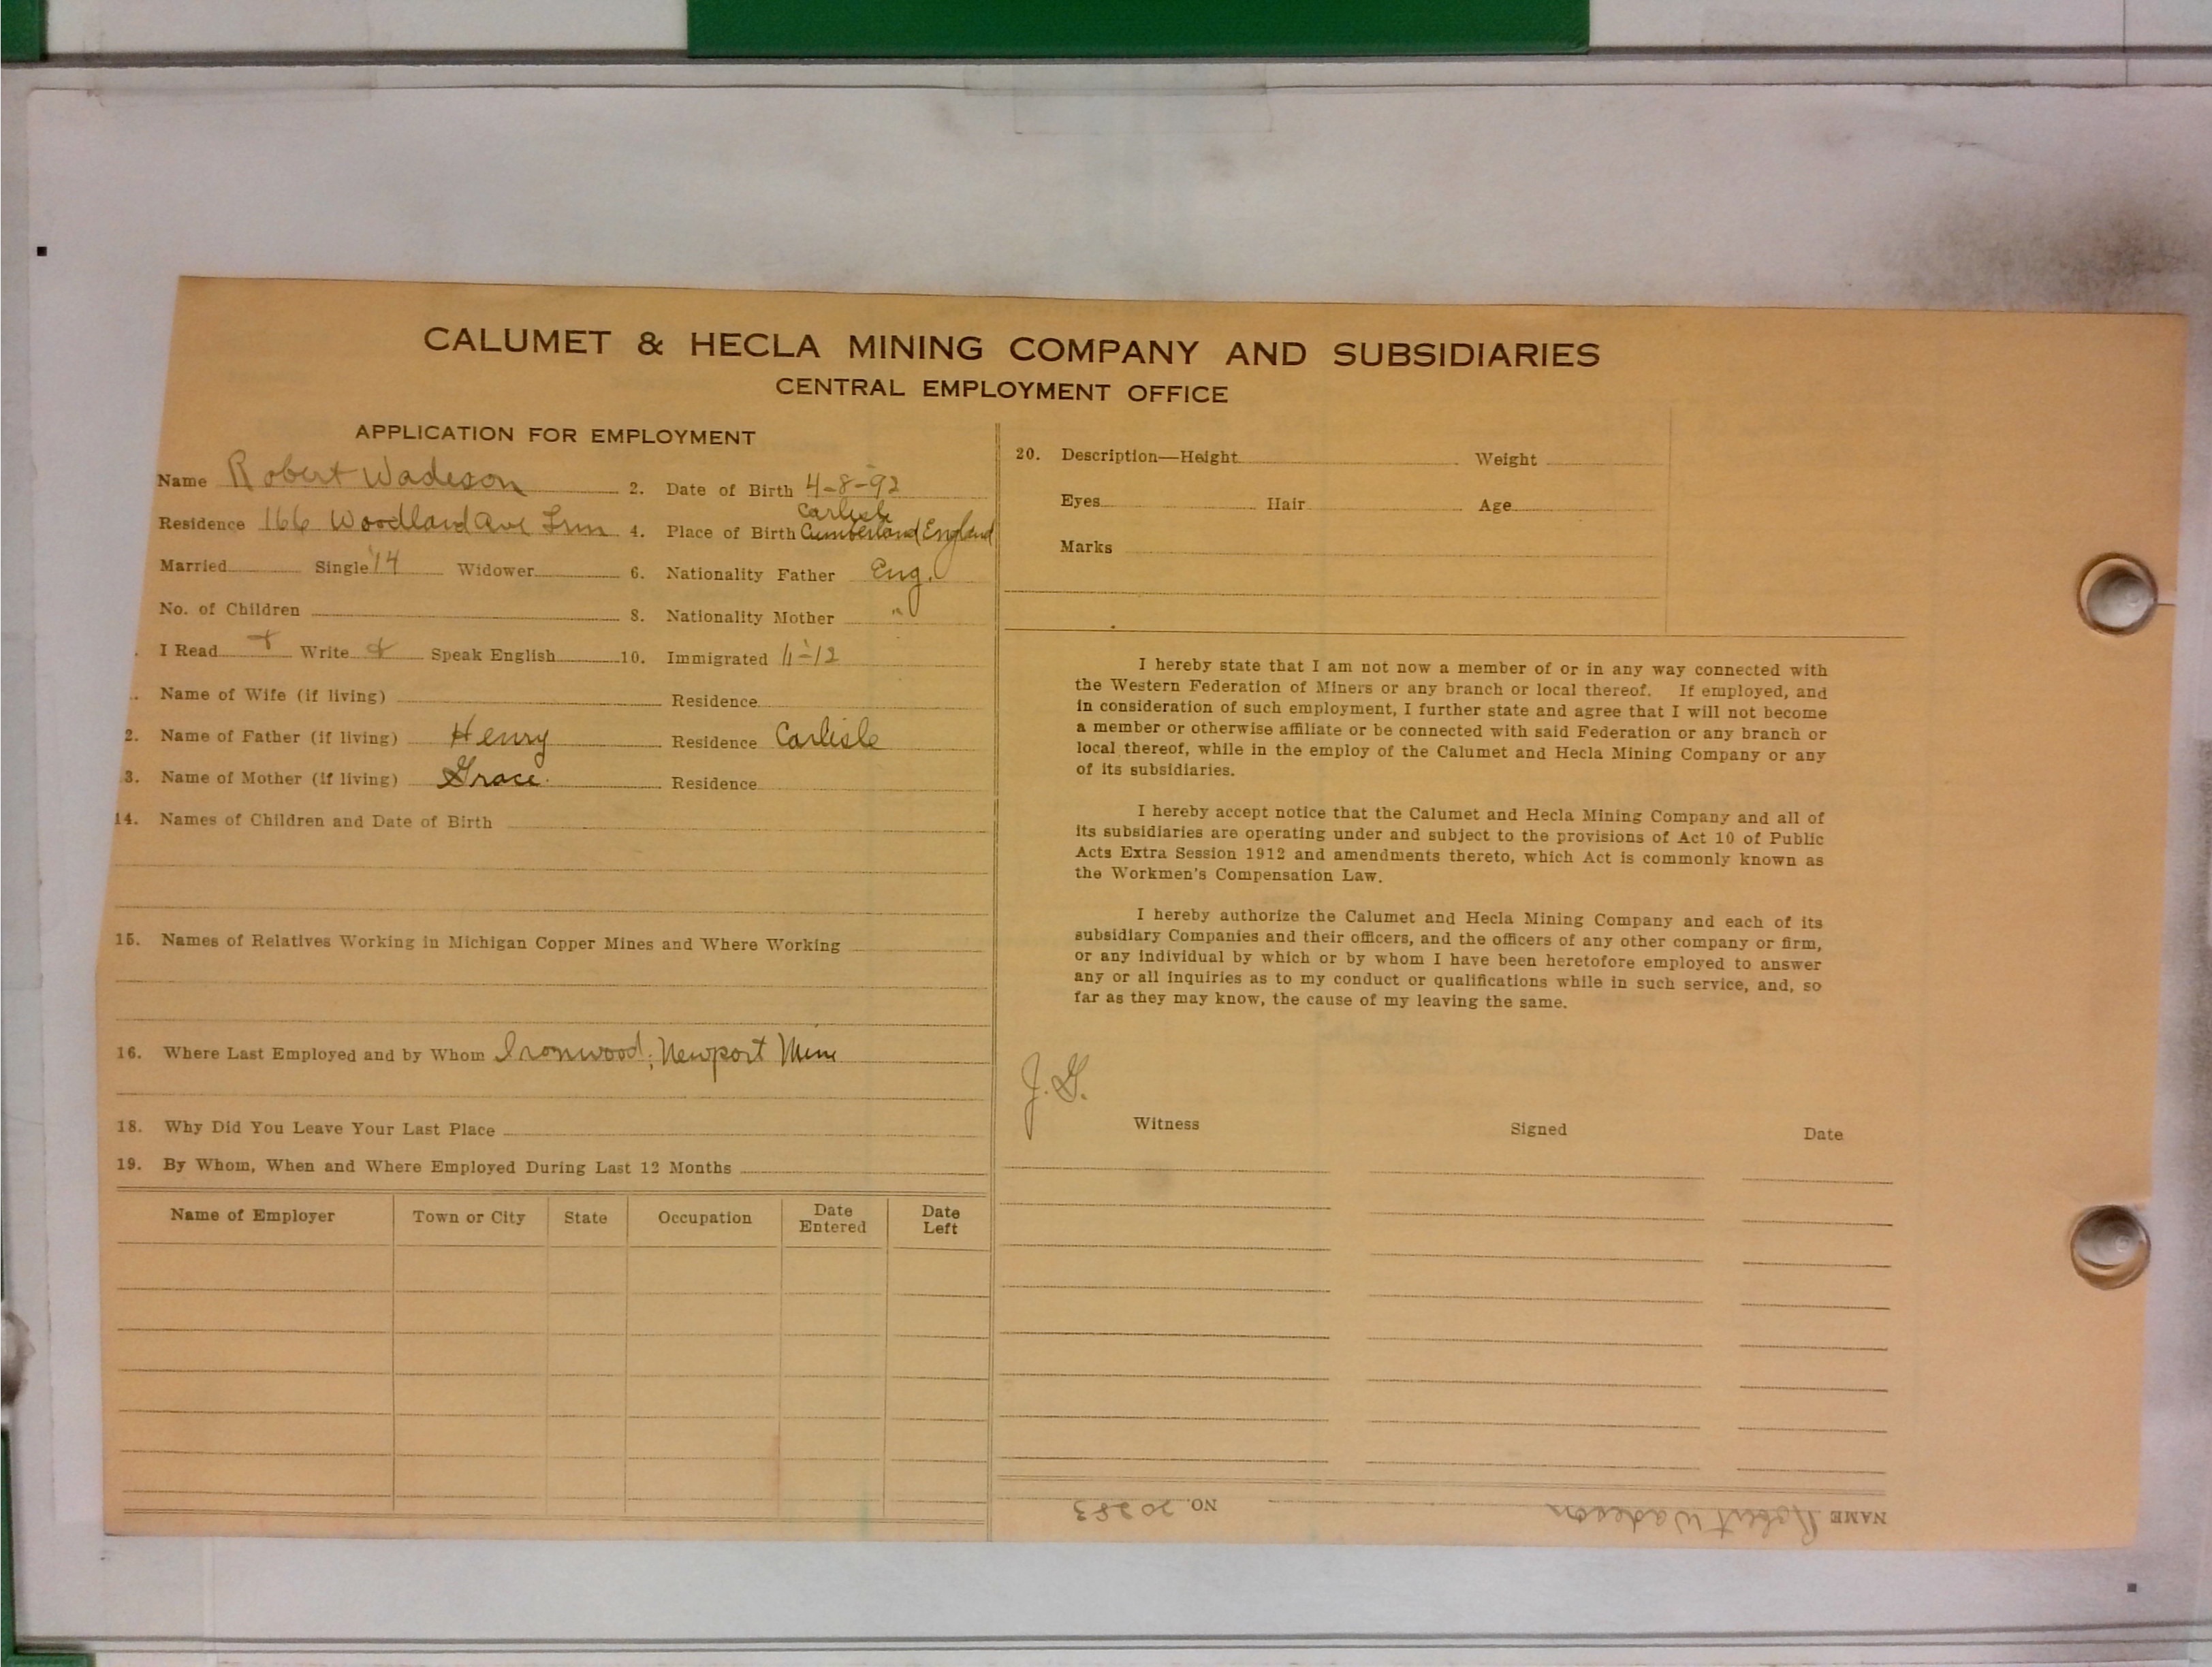 CALUMET & HECLA MINING COMPANY AND SUBSIDIARIES
CENTRAL EMPLOYMENT OFFICE
APPLICATION FOR EMPLOYMENT
Name Robert Wadeson 2. Date of Birth 4-8-92
Carlisle
Residence 166 Woodland Ave 4. Place of Birth Cumberland England
Married Single '14 Widower 6. Nationality Father Eng.
No. of Children 8. Nationality Mother "
I Read + Write + Speak English 10. Immigrated 11-12
Name of Wife (if living) Residence
2. Name of Father (if living) Henry Residence Carlisle
3. Name of Mother (if living) Grace. Residence
14. Names of Children and Date of Birth
15. Names of Relatives Working in Michigan Copper Mines and Where Working
16. Where Last Employed and by Whom Ironwood, Newport Mine
18. Why Did You Leave Your Last Place
19. By Whom, When and Where Employed During Last 12 Months
Name of Employer Town or City State Occupation Date Entered Date Left
20. Description—Height Weight
Eyes Hair Age
Marks
I hereby state that I am not now a member of or in any way connected with
the Western Federation of Miners or any branch or local thereof. If employed, and
in consideration of such employment, I further state and agree that I will not become
a member or otherwise affiliate or be connected with said Federation or any branch or
local thereof, while in the employ of the Calumet and Hecla Mining Company or any
of its subsidiaries.
I hereby accept notice that the Calumet and Hecla Mining Company and all of
its subsidiaries are operating under and subject to the provisions of Act 10 of Public
Acts Extra Session 1912 and amendments thereto, which Act is commonly known as
the Workmen's Compensation Law.
I hereby authorize the Calumet and Hecla Mining Company and each of its
subsidiary Companies and their officers, and the officers of any other company or firm,
or any individual by which or by whom I have been heretofore employed to answer
any or all inquiries as to my conduct or qualifications while in such service, and, so
far as they may know, the cause of my leaving the same.
J. G.
Witness Signed Date
NAME Robert Wadeson NO. 20283